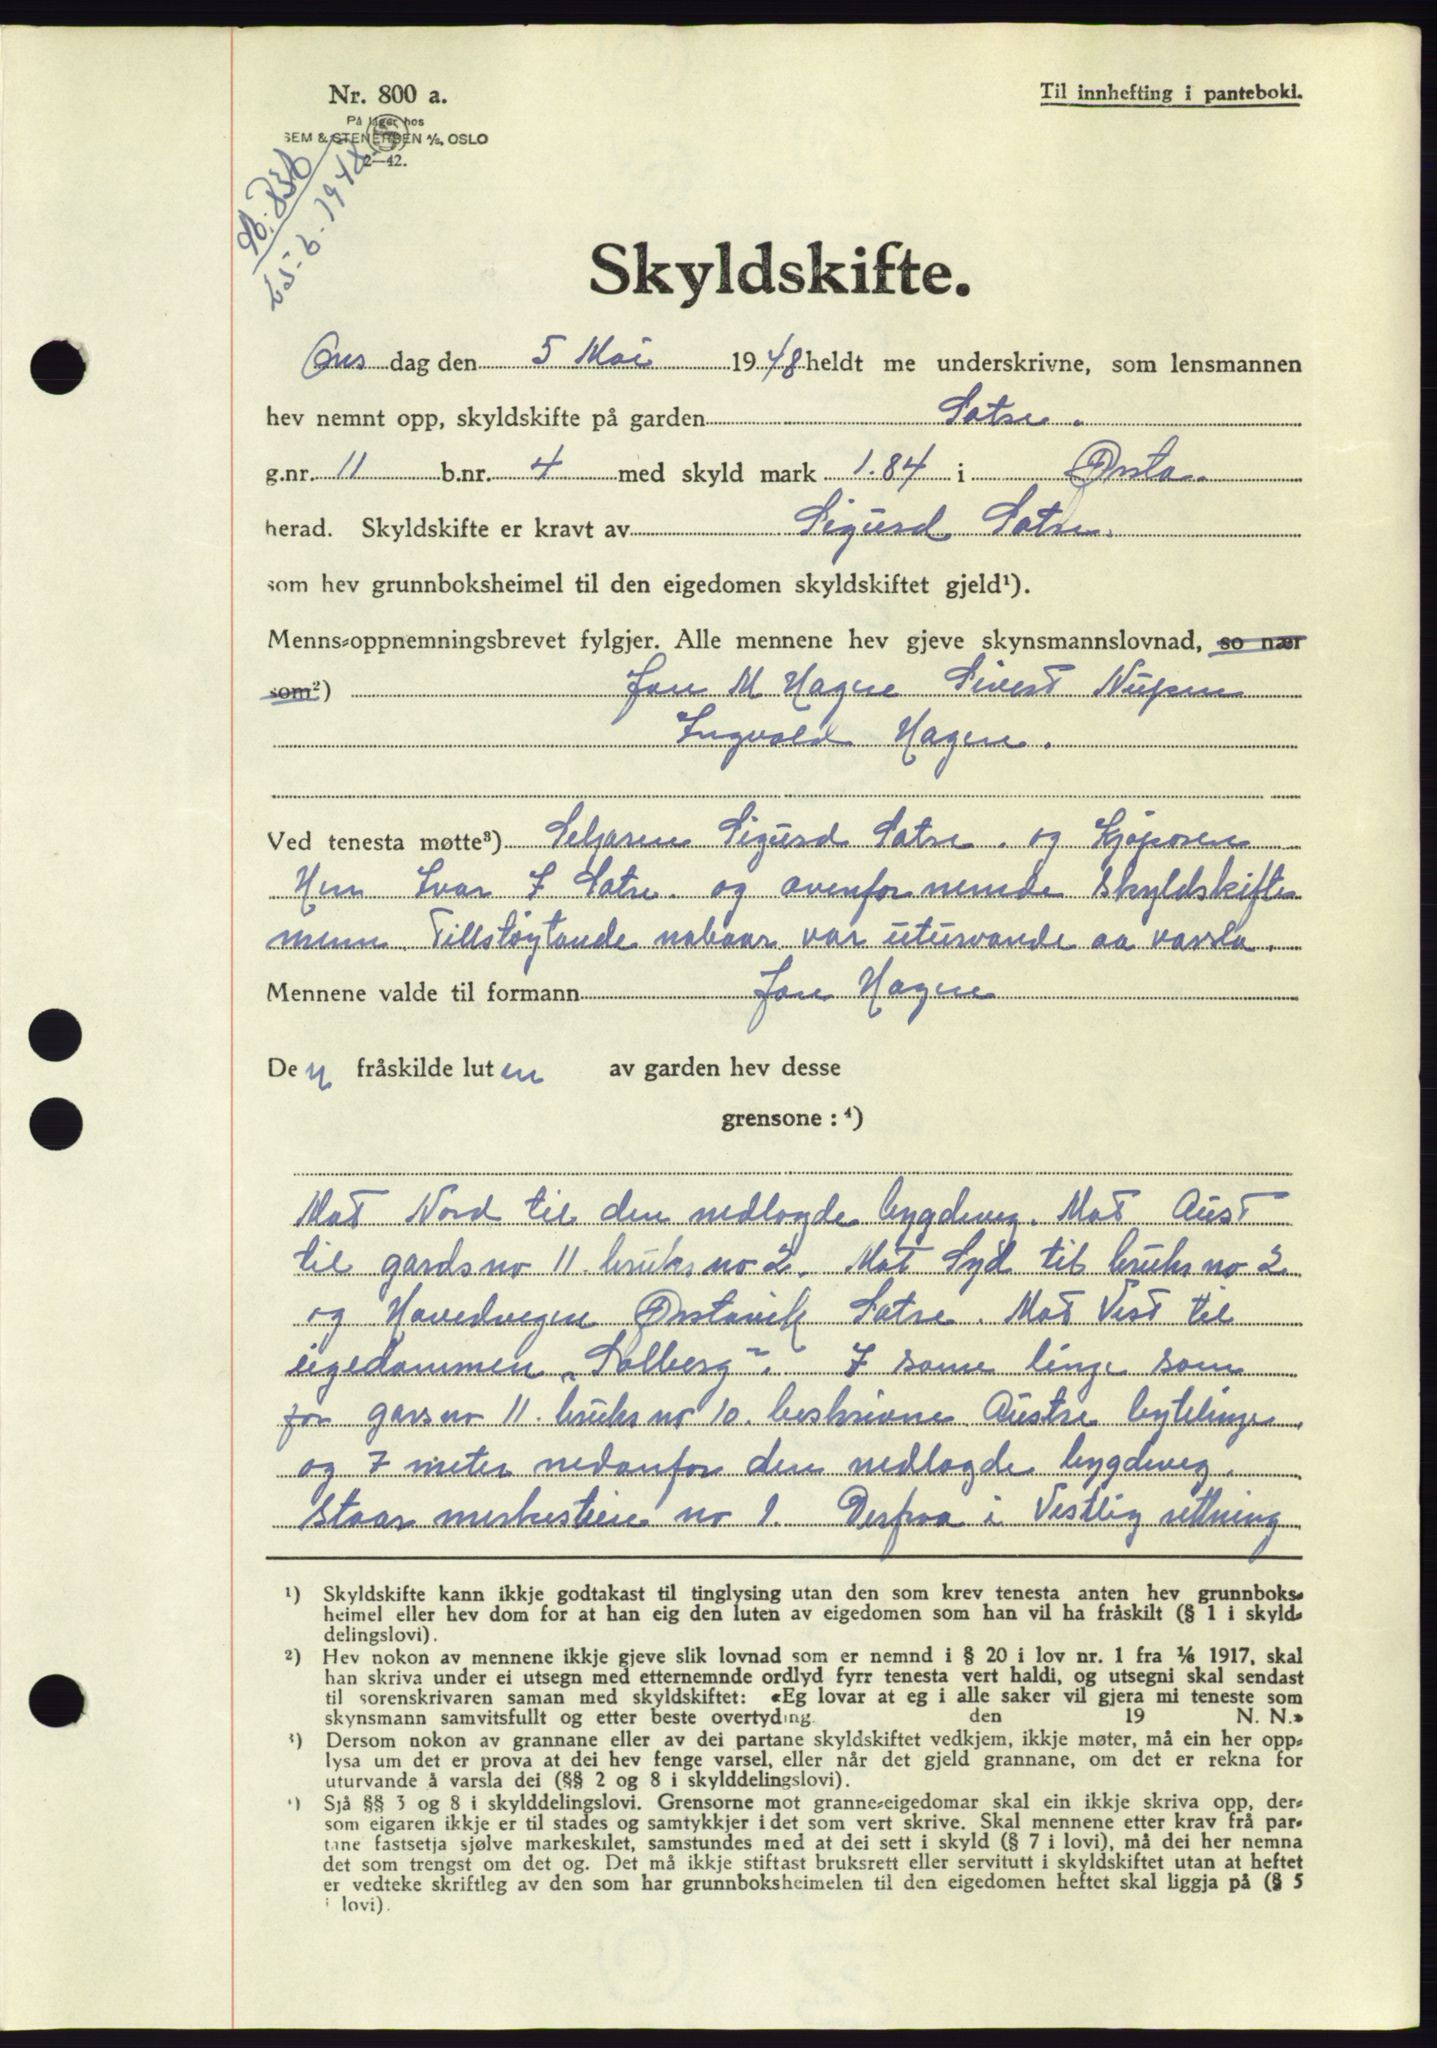 Nr. 800 a.
Til innhefting i panteboki.
På lager hos
SEM & STENERSEN A/S, OSLO
2—42.
25-6-1948
Skyldskifte.
Ons dag den 5 Mai 1948 heldt me underskrivne, som lensmannen
hev nemnt opp, skyldskifte på garden Satre.
g.nr. 11 b.nr. 4 med skyld mark 1.84 i Ørsta
herad. Skyldskifte er kravt av Sigurd Satre.
som hev grunnboksheimel til den eigedomen skyldskiftet gjeld¹).
Menns-oppnemningsbrevet fylgjer. Alle mennene hev gjeve skynsmannslovnad, so nær
som²) Jon M Hagen Sivert Nupen
Ingvald Hagen.
Ved tenesta møtte³) Seljaren Sigurd Satre. og Kjøparen
Herr Ivar I Satre. og ovenfor nemde Skyldskifte
menn. Tillstøytande nabaar var uturvande aa varsla.
Mennene valde til formann Jon Hagen
De n fråskilde lut en av garden hev desse
grensone : ⁴)
Mot Nord til den nedlagde bygdeveg. Mot Aust
til gards no 11. bruks no 2. Mot Syd til bruks no 2
og Hovedvegen Ørstavik Satre. Mot Vest til
eigedommen „Solberg". I same linje som
for garsno 11. bruks no 10. beskrivne Austre bytelinje,
og 7 meter nedanfor den nedlagde bygdeveg.
Staar merkestein no 1. Derfraa i Vestlig rettning
¹) Skyldskifte kann ikkje godtakast til tinglysing utan den som krev tenesta anten hev grunnboks-
heimel eller hev dom for at han eig den luten av eigedomen som han vil ha fråskilt (§ 1 i skyld-
delingslovi).
²) Hev nokon av mennene ikkje gjeve slik lovnad som er nemnd i § 20 i lov nr. 1 fra 1/6 1917, skal
han skriva under ei utsegn med etternemnde ordlyd fyrr tenesta vert haldi, og utsegni skal sendast
til sorenskrivaren saman med skyldskiftet: «Eg lovar at eg i alle saker vil gjera mi teneste som
skynsmann samvitsfullt og etter beste overtyding. den 19 N. N.»
³) Dersom nokon av grannane eller av dei partane skyldskiftet vedkjem, ikkje møter, må ein her opp-
lysa um det er prova at dei hev fenge varsel, eller når det gjeld grannane, om det er rekna for
uturvande å varsla dei (§§ 2 og 8 i skylddelingslovi).
⁴) Sjå §§ 3 og 8 i skylddelingslovi. Grensorne mot granne-eigedomar skal ein ikkje skriva opp, der-
som eigaren ikkje er til stades og samtykkjer i det som vert skrive. Skal mennene etter krav frå par-
tane fastsetja sjølve markeskilet, samstundes med at dei sett i skyld (§ 7 i lovi), må dei her nemna
det som trengst om det og. Det må ikkje stiftast bruksrett eller servitutt i skyldskiftet utan at heftet
er vedteke skriftleg av den som har grunnboksheimelen til den eigedomen heftet skal liggja på (§ 5
i lovi).